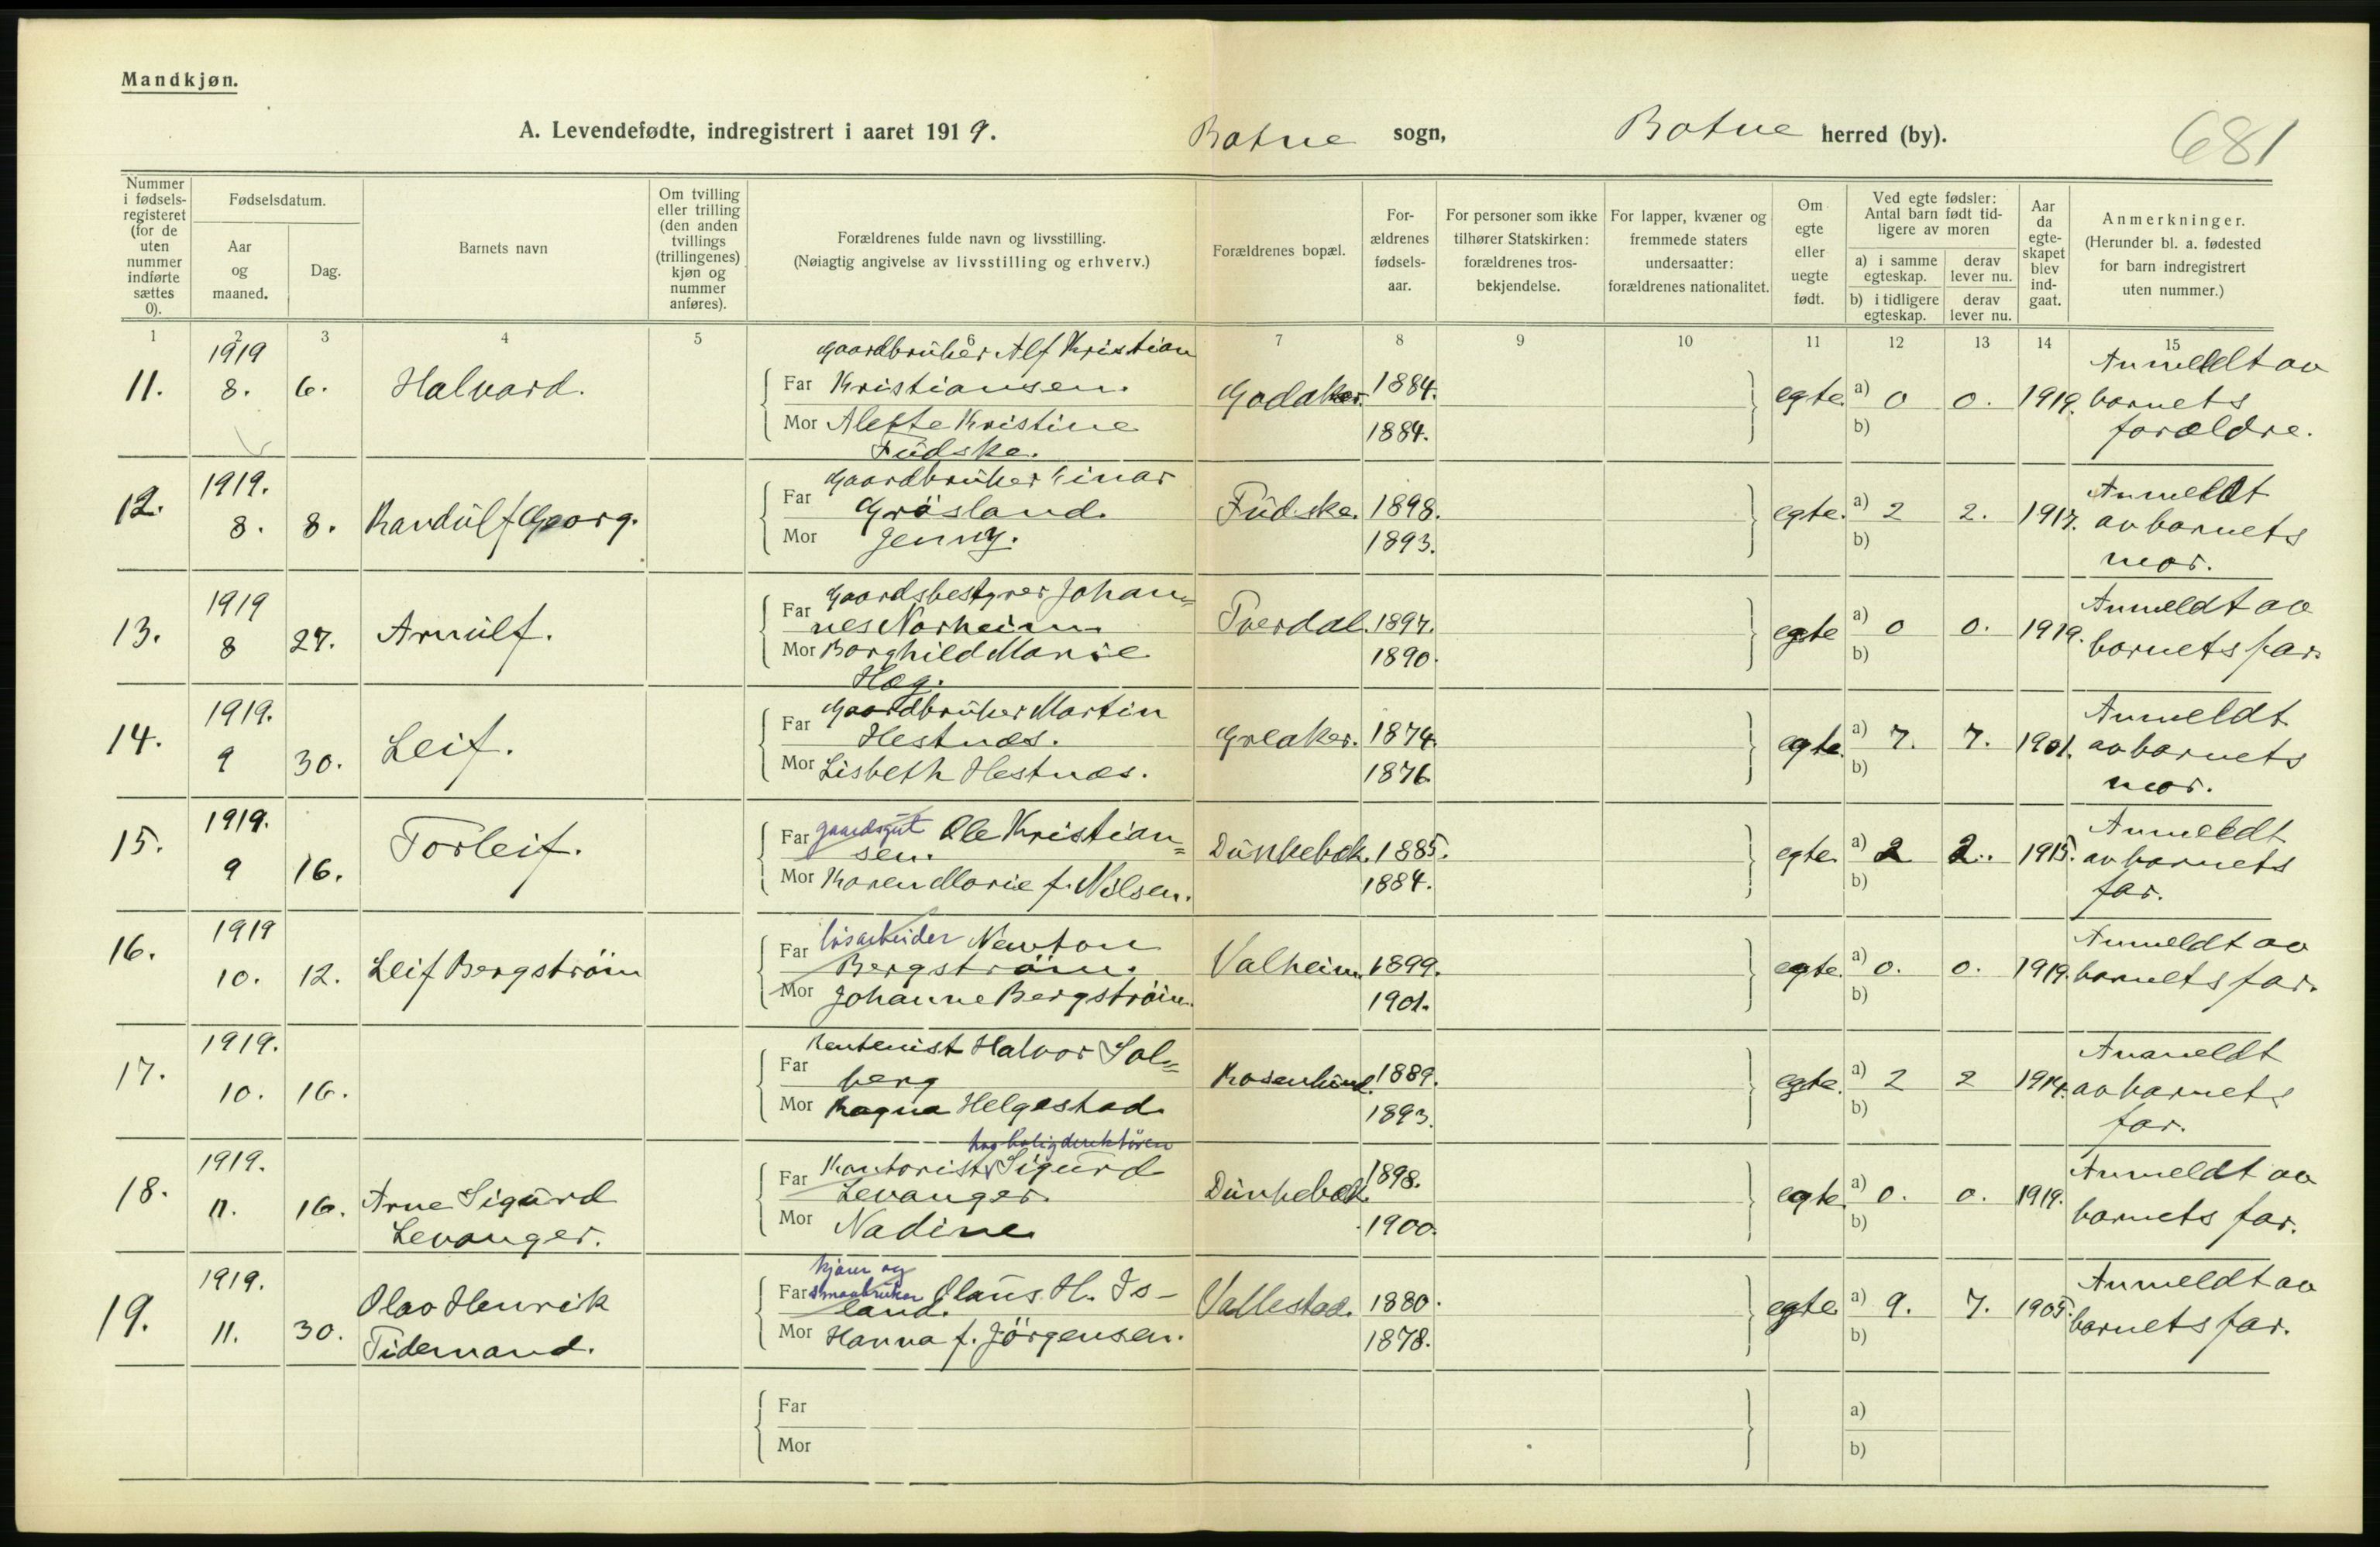 Mandkjøn.
A. Levendefødte, indregistrert i aaret 1919. Botne sogn, Botne herred (by). 681
Nummer i fødselsregisteret (for de uten nummer indførte sættes 0).
Fødselsdatum.
Aar og maaned.
Dag.
Barnets navn
Om tvilling eller trilling (den anden tvillings (trillingenes) kjøn og nummer anføres).
Forældrenes fulde navn og livsstilling.
(Nøiagtig angivelse av livsstilling og erhverv.)
Forældrenes bopæl.
For-ældrenes fødsels-aar.
For personer som ikke tilhører Statskirken: forældrenes tros-bekjendelse.
For lapper, kvæner og fremmede staters undersaatter: forældrenes nationalitet.
Om egte eller uegte født.
Ved egte fødsler: Antal barn født tid-ligere av moren
a) i samme egteskap. derav lever nu.
b) i tidligere egteskap. derav lever nu.
Aar da egte-skapet blev ind-gaat.
Anmerkninger.
(Herunder bl. a. fødested for barn indregistrert uten nummer.)
1 2 3 4 5 6 7 8 9 10 11 12 13 14 15
11. 1919 8. 6. Halvard.
Gaardbruker Alf Kristian
Far Kristiansen.
Mor Alette Kristine
Fudske.
1884. 1884. egte a) 0 0. 1919. b)
Anmeldt av
barnets
forældre.
12. 1919. 8. 8. Randulf Georg.
Gaardbruker Einar
Far Grøsland.
Mor Jenny.
Fudske. 1898. 1893. egte. a) 2 2. 1917. b)
Anmeldt
av barnets
mor.
13. 1919 8 27. Arnulf.
Gaardsbestyrer Johan=
Far nes Norheim
Mor Borghild Marie
Hag.
Tverdal. 1897. 1890. egte a) 0 0. 1919. b)
Anmeldt av
barnets far.
14. 1919. 9 30. Leif.
Gaardbruker Martin
Far Hestnæs.
Mor Lisbeth Hestnæs.
Greaker. 1874. 1876. egte. a) 7. 7. 1901. b)
Anmeldt
av barnets
mor.
15. 1919. 9 16. Torleif.
Far gaardsgut Ole Kristian=
sen.
Mor Karen Marie f. Nilsen.
Dunkebek. 1885. 1884. egte. a) 2 2. 1915. b)
Anmeldt
av barnets
far.
16. 1919 10. 12. Leif Bergstrøm
Far løsarbeider Newton
Bergstrøm.
Mor Johanne Bergstrøm.
Valheim. 1899. 1901. egte. a) 0. 0. 1919. b)
Anmeldt av
barnets far.
17. 1919. 10. 16.
Rentenist Halvor Sol=
Far berg
Mor Ragna Helgestad.
Rosenlund. 1889. 1893. egte. a) 2 2 1914. b)
Anmeldt
av barnets
far.
18. 1919. 11. 16. Arne Sigurd
Levanger.
hos boligdirektøren
Far Kontorist Sigurd
Levanger.
Mor Nadine
Dunkebek. 1898. 1900. egte. a) 0. 0. 1919. b)
Anmeldt av
barnets far.
19. 1919. 11. 30. Olav Henrik
Tidemand.
Far smaabruker Olaus H. Is-
land.
Mor Hanna f. Jörgensen.
Vallestad. 1880. 1878. egte a) 9. 7. 1905. b)
Anmeldt av
barnets far.
Far
Mor
a)
b)